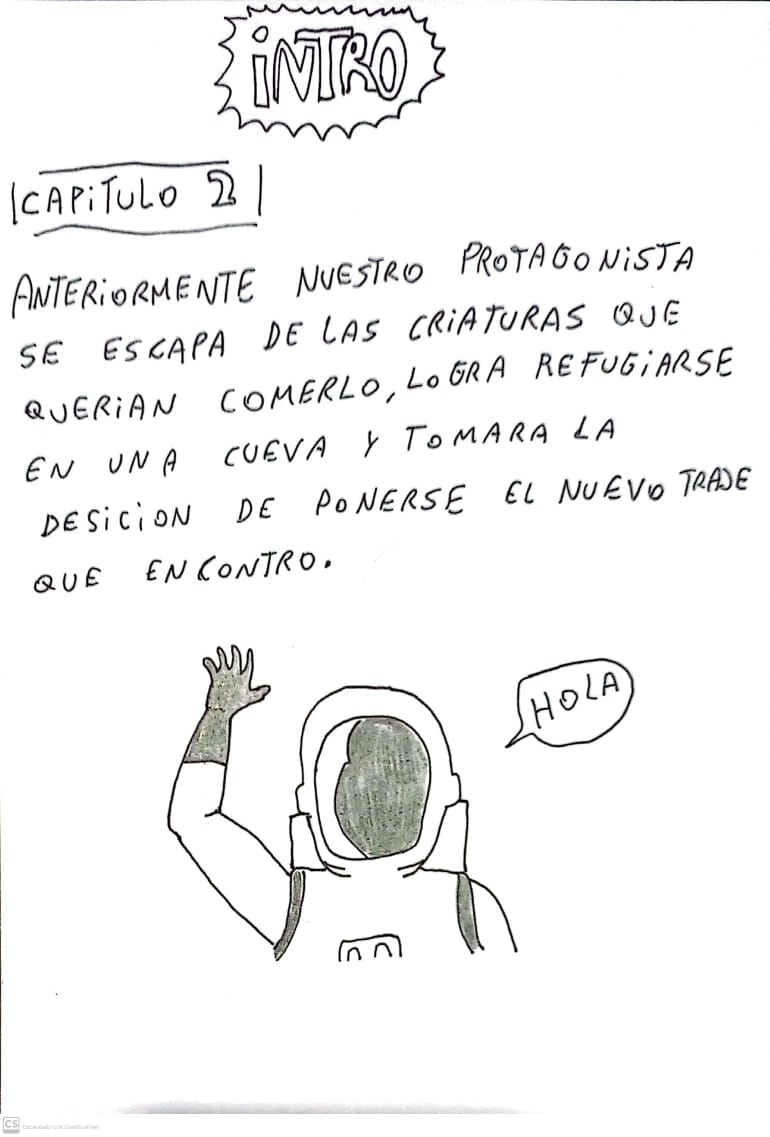 INTRO
CAPITULO 2
ANTERIORMENTE NUESTRO PROTAGONISTA
SE ESCAPA DE LAS CRIATURAS QUE
QUERIAN COMERLO, LOGRA REFUGIARSE
EN UNA CUEVA Y TOMARA LA
DESICION DE PONERSE EL NUEVO TRAJE
QUE ENCONTRO.
HOLA
CS Escaneado con CamScanner